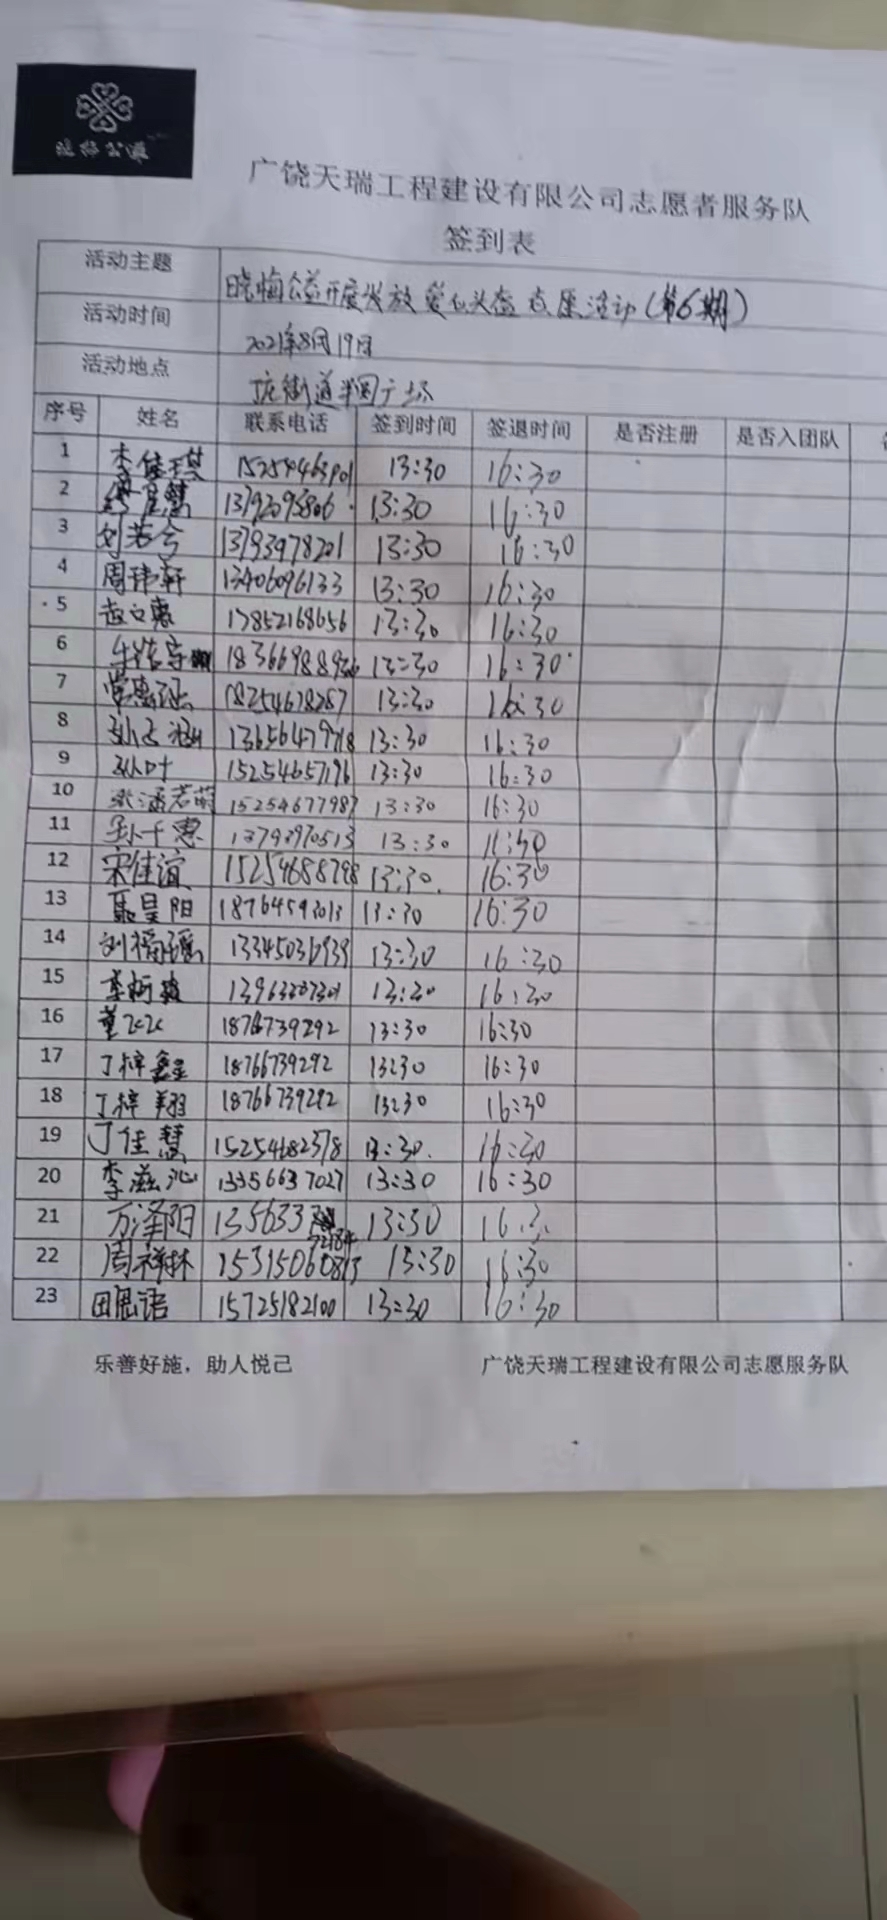 广饶天瑞工程建设有限公司志愿者服务队
签到表
活动主题 晓梅公益开展发放爱心头盔志愿活动(第6期)
活动时间 2021年8月19日
活动地点 街道半圆广场
序号 姓名 联系电话 签到时间 签退时间 是否注册 是否入团队
1 李佳琪 13:30 16:30
2 13:30 16:30
3 刘若兮 13793978201 13:30 16:30
4 周玮轩 13406096133 13:30 16:30
5 赵文惠 17852168656 13:30 16:30
6 13:30 16:30
7 常惠涵 18254678287 13:30 16:30
8 13656479718 13:30 16:30
9 孙叶 15254657196 13:30 16:30
10 若萌 15254677987 13:30 16:30
11 孙千惠 13793970513 13:30
12 宋佳谊 15254688798 13:30 16:30
13 聂呈阳 18764592013 13:30 16:30
14 刘福瑶 13:30 16:30
15 13:30 16:30
16 董 18766739292 13:30 16:30
17 丁梓鑫 18766739292 13:30 16:30
18 丁梓翔 18766739292 13:30 16:30
19 丁佳慧 15254682378 13:30 16:30
20 李滋沁 13356637027 13:30 16:30
21 万泽阳 13:30
22 周祥林 15315060813 13:30 16:30
23 田恩语 15725182100 13:30 16:30
乐善好施，助人悦己 广饶天瑞工程建设有限公司志愿服务队